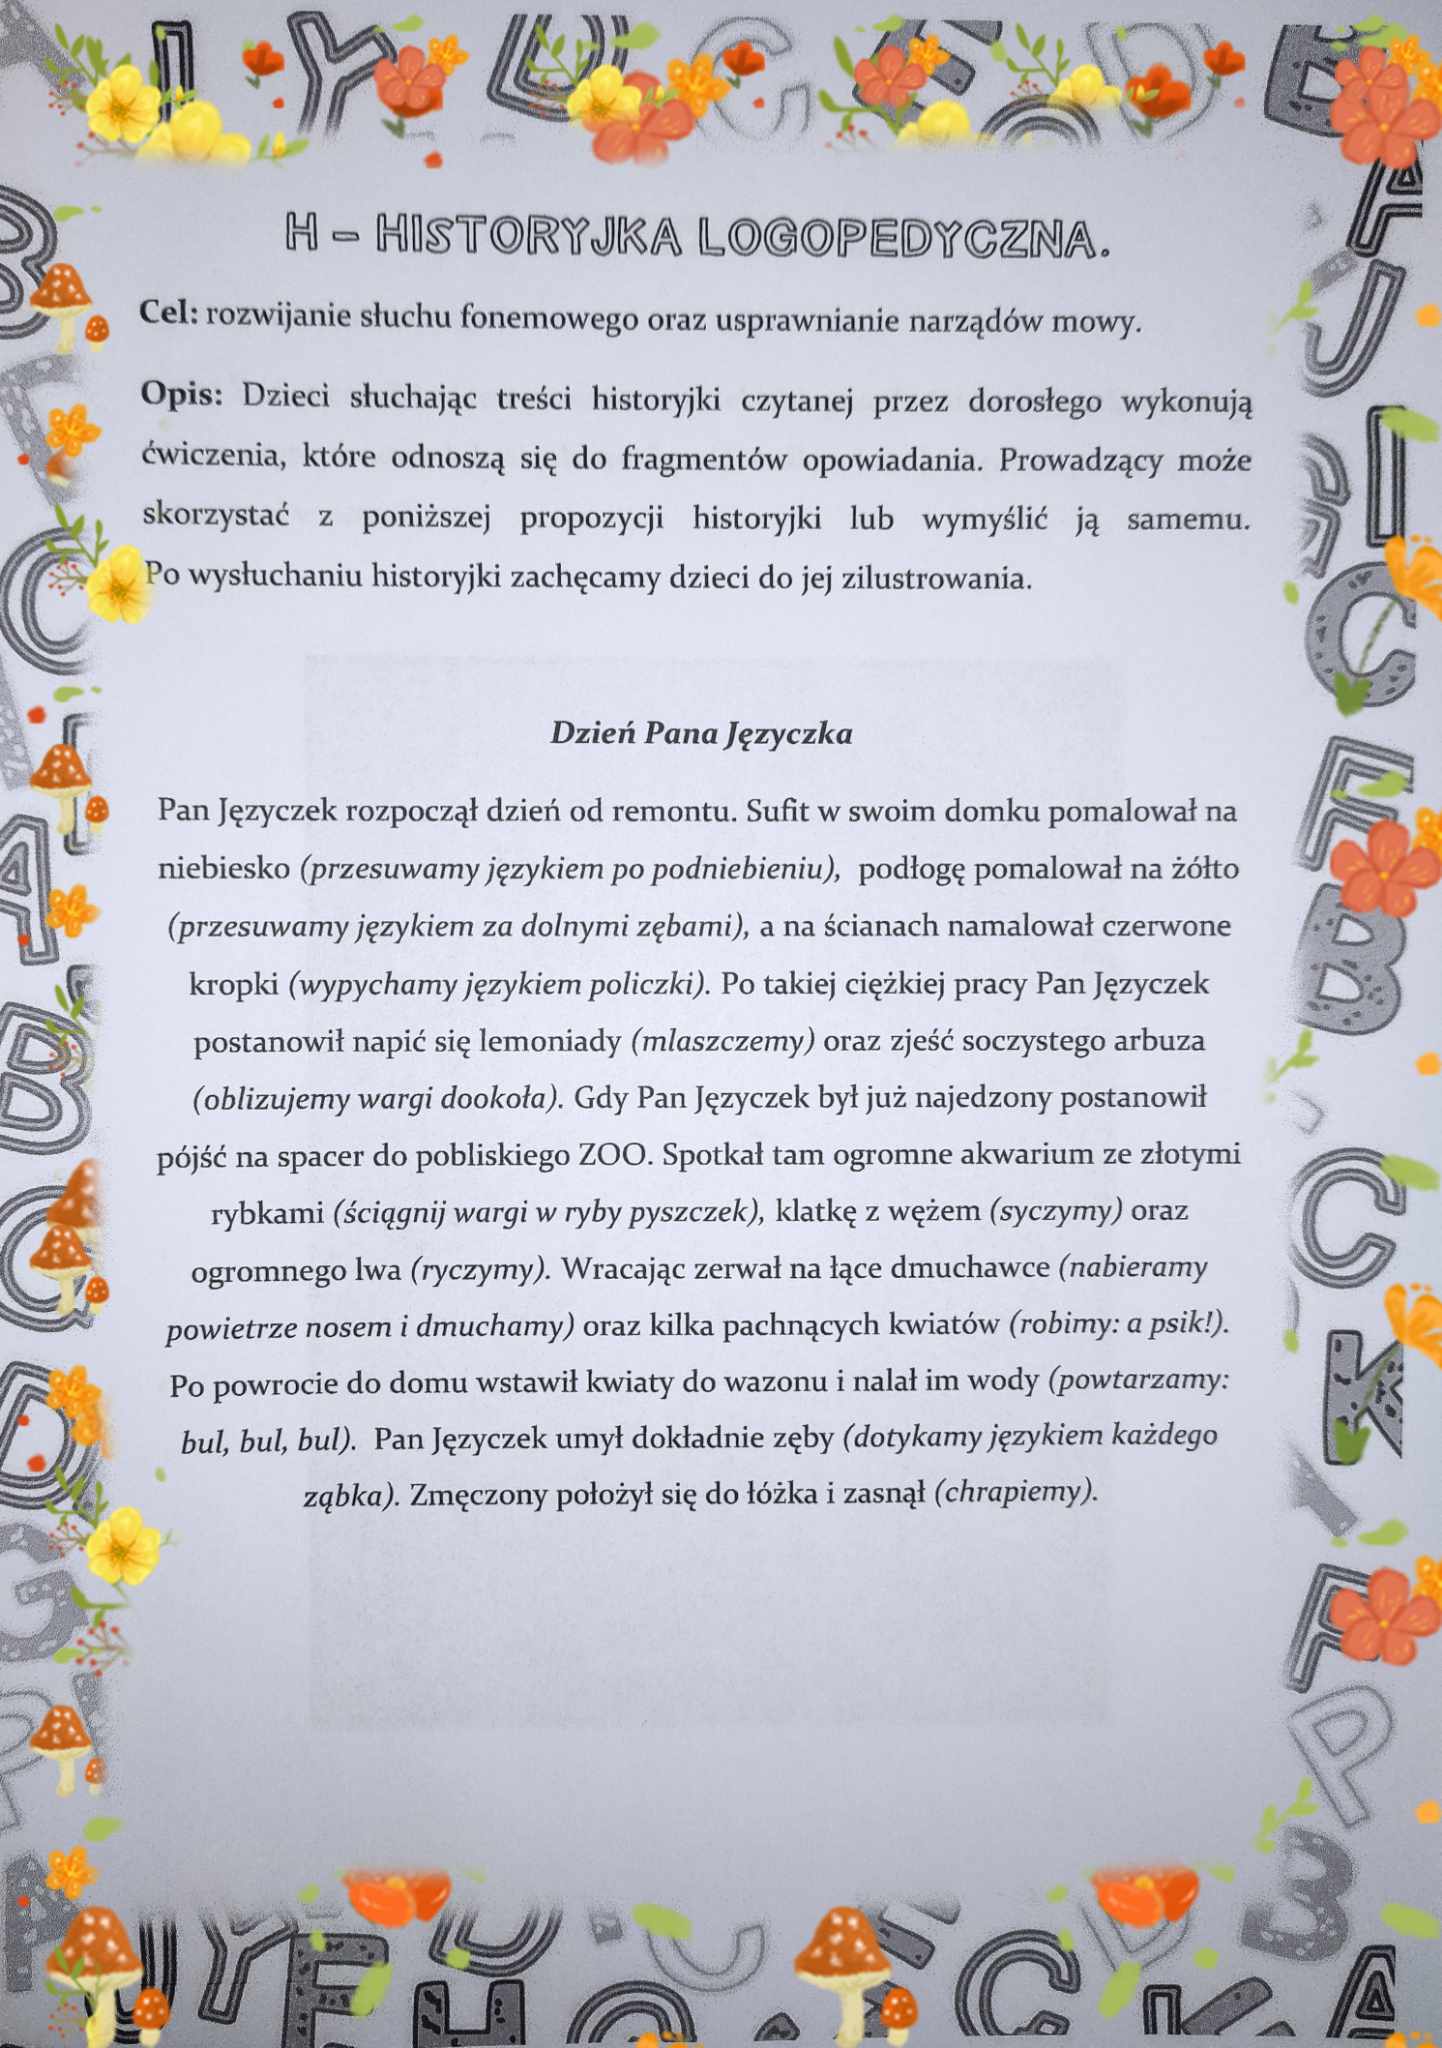 H – HISTORYJKA LOGOPEDYCZNA.
Cel: rozwijanie słuchu fonemowego oraz usprawnianie narządów mowy.
Opis: Dzieci słuchając treści historyjki czytanej przez dorosłego wykonują
ćwiczenia, które odnoszą się do fragmentów opowiadania. Prowadzący może
skorzystać z poniższej propozycji historyjki lub wymyślić ją samemu.
Po wysłuchaniu historyjki zachęcamy dzieci do jej zilustrowania.
Dzień Pana Języczka
Pan Języczek rozpoczął dzień od remontu. Sufit w swoim domku pomalował na
niebiesko (przesuwamy językiem po podniebieniu), podłogę pomalował na żółto
(przesuwamy językiem za dolnymi zębami), a na ścianach namalował czerwone
kropki (wypychamy językiem policzki). Po takiej ciężkiej pracy Pan Języczek
postanowił napić się lemoniady (mlaszczemy) oraz zjeść soczystego arbuza
(oblizujemy wargi dookoła). Gdy Pan Języczek był już najedzony postanowił
pójść na spacer do pobliskiego ZOO. Spotkał tam ogromne akwarium ze złotymi
rybkami (ściągnij wargi w ryby pyszczek), klatkę z wężem (syczymy) oraz
ogromnego lwa (ryczymy). Wracając zerwał na łące dmuchawce (nabieramy
powietrze nosem i dmuchamy) oraz kilka pachnących kwiatów (robimy: a psik!).
Po powrocie do domu wstawił kwiaty do wazonu i nalał im wody (powtarzamy:
bul, bul, bul). Pan Języczek umył dokładnie zęby (dotykamy językiem każdego
ząbka). Zmęczony położył się do łóżka i zasnął (chrapiemy).